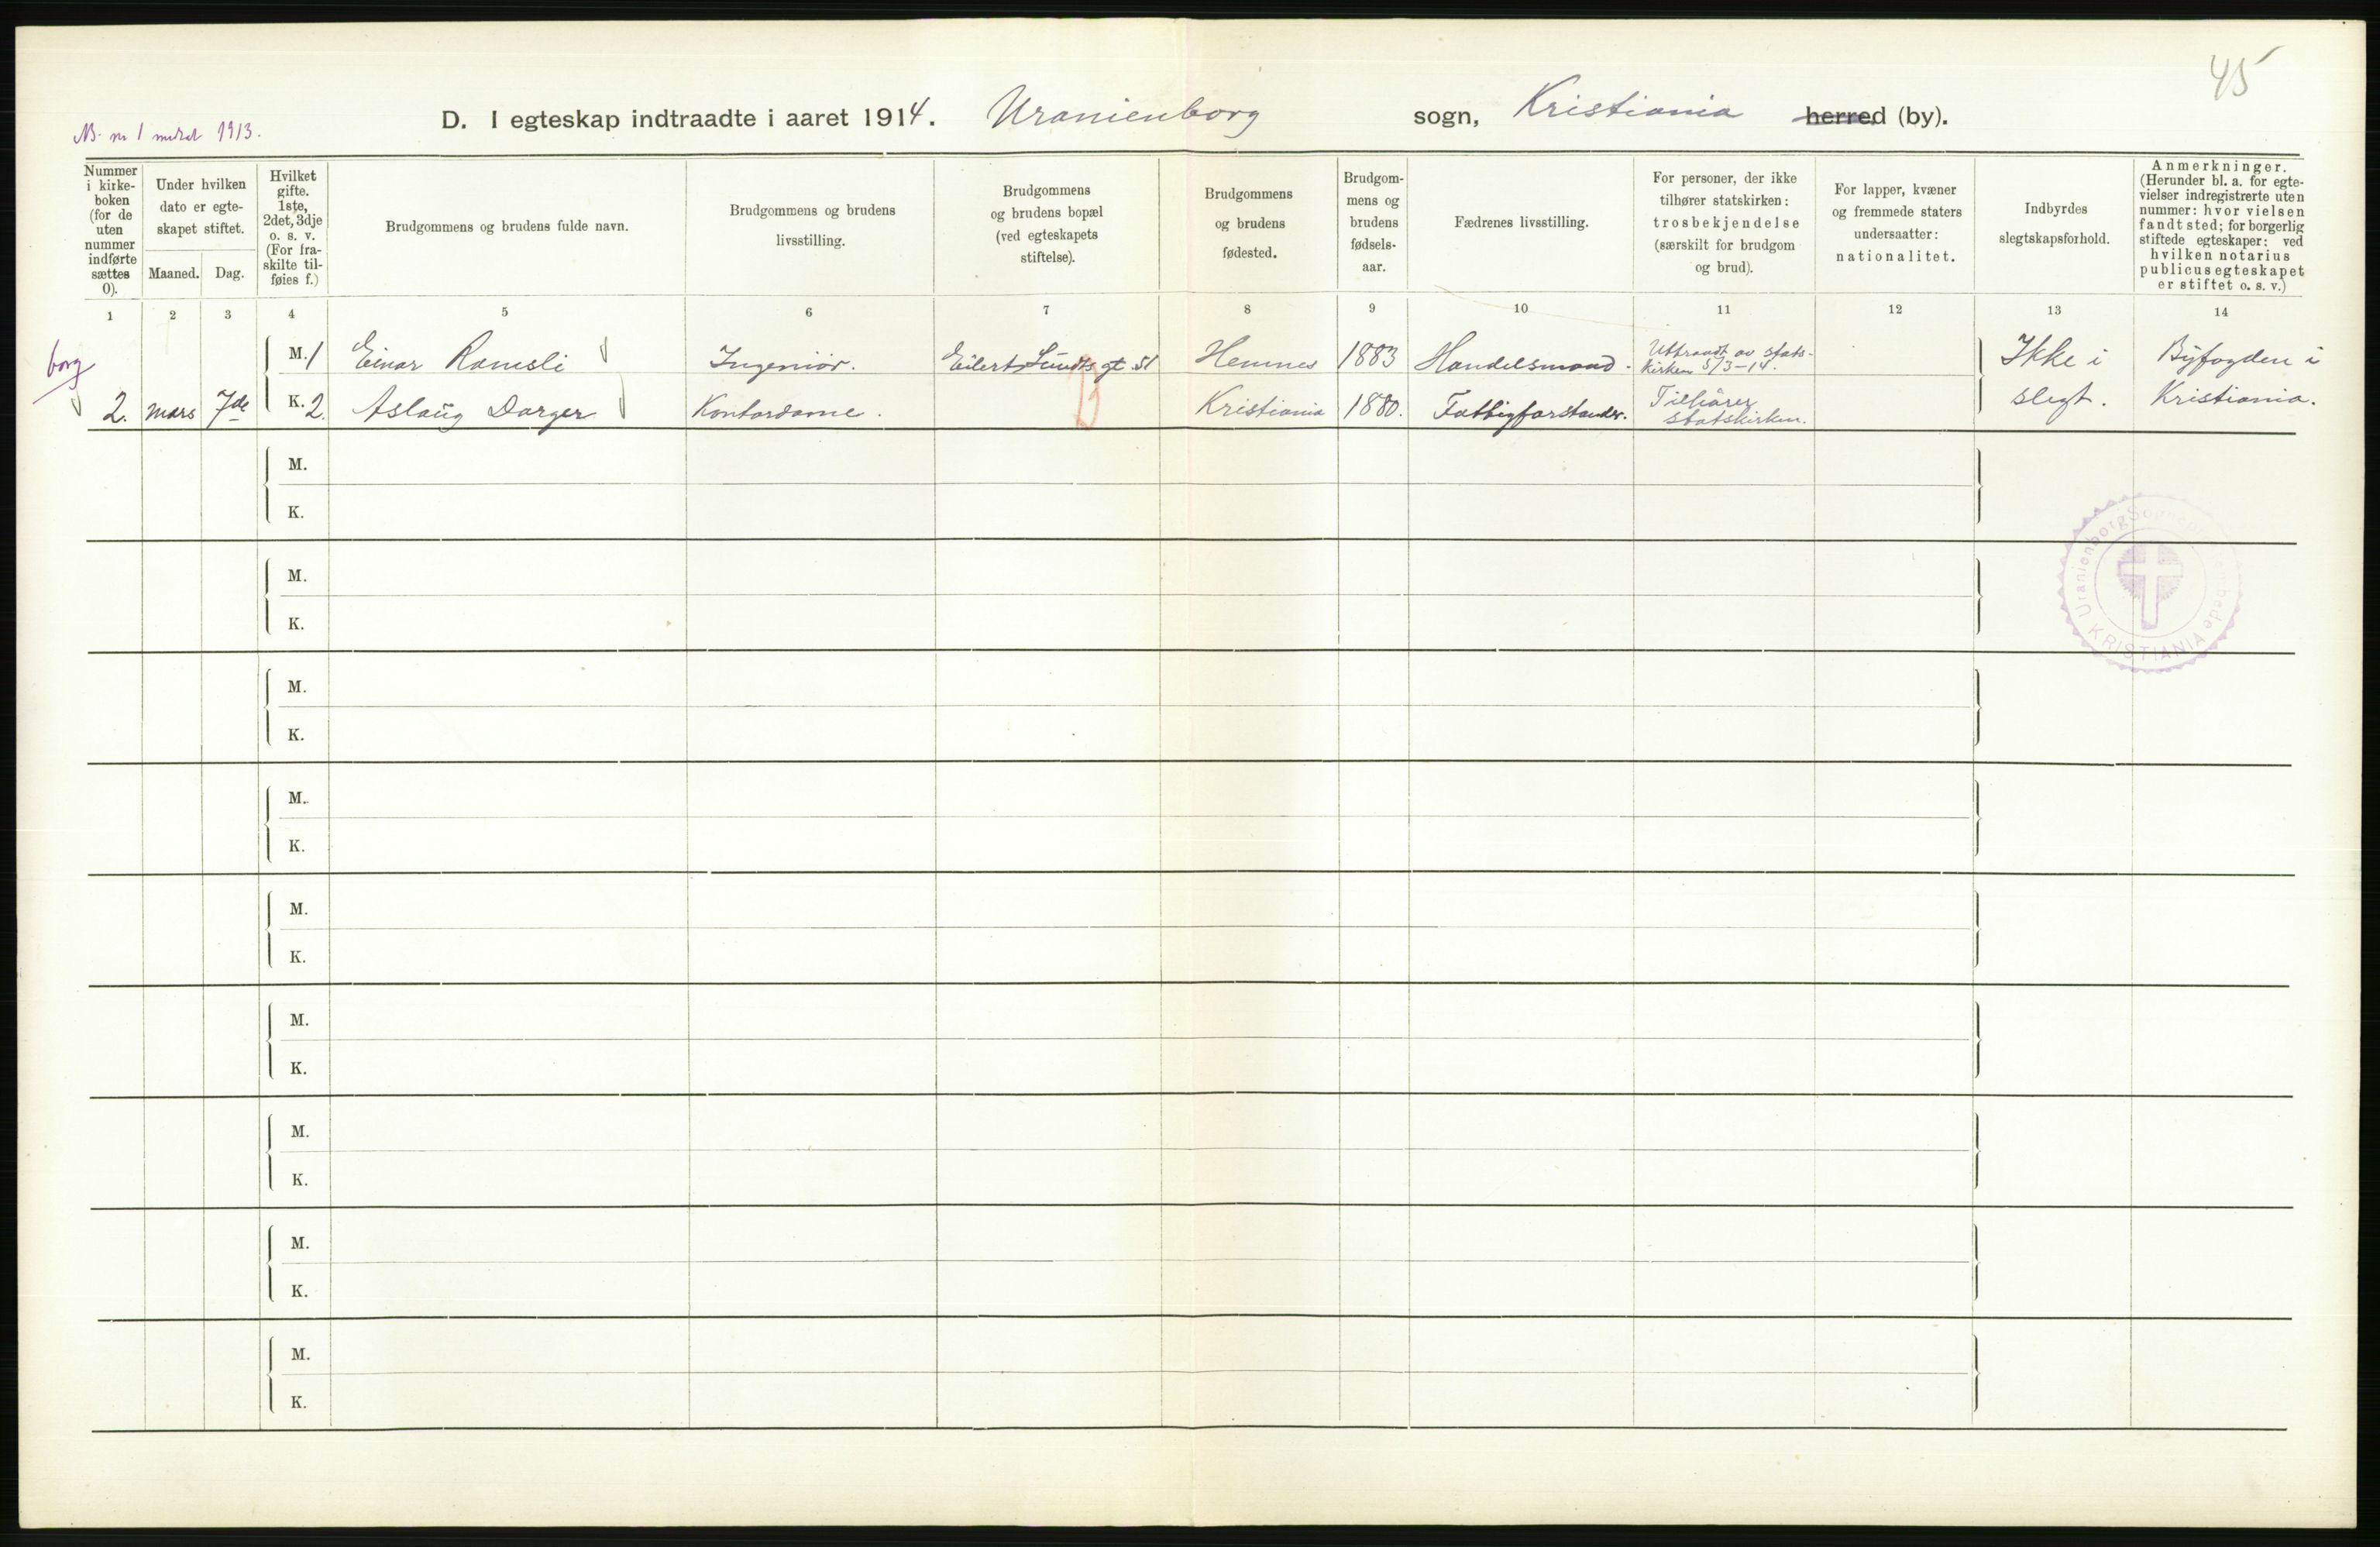 45
NB. nr 1 
D. I egteskap indtraadte i aaret 1914. Uranienborg sogn, Kristiania herred (by).
1913.
Nummer
i kirke-
boken
(for de
uten
nummer
indførte
sættes
0).
Under hvilken
dato er egte-
skapet stiftet.
Maaned. Dag.
Hvilket
gifte.
1ste,
2det, 3dje
o. s. v.
(For fra-
skilte til-
føies f.)
Brudgommens og brudens fulde navn.
Brudgommens og brudens
livsstilling.
Brudgommens
og brudens bopæl
(ved egteskapets
stiftelse).
Brudgommens
og brudens
fødested.
Brudgom-
mens og
brudens
fødsels-
aar.
Fædrenes livsstilling.
For personer, der ikke
tilhører statskirken:
trosbekjendelse
(særskilt for brudgom
og brud).
For lapper, kvæner
og fremmede staters
undersaatter:
nationalitet.
Indbyrdes
slegtskapsforhold.
Anmerkninger.
(Herunder bl. a. for egte-
vielser indregistrerte uten
nummer: hvor vielsen
fandt sted; for borgerlig
stiftede egteskaper: ved
hvilken notarius
publicus egteskapet
er stiftet o. s. v.)
1 2 3 4 5 6 7 8 9 10 11 12 13 14
borg
M. 1 Einar Ramsli Ingeniör. Eilert Sundts gt. 51 Hemnes 1883 Handelsmand. Uttraadt av stats-
kirken 5/3-14.
Ikke i
slegt.
Byfogden i
Kristiania.
2. mars 7de K. 2. Aslaug Dorger Kontordame. Kristiania 1880. Fattigforstander. Tilhörer
statskirken.
B
M.
K.
M.
K.
M.
K.
M.
K.
M.
K.
M.
K.
M.
K.
M.
K.
M.
K.
Uranienborg
KRISTIANIA